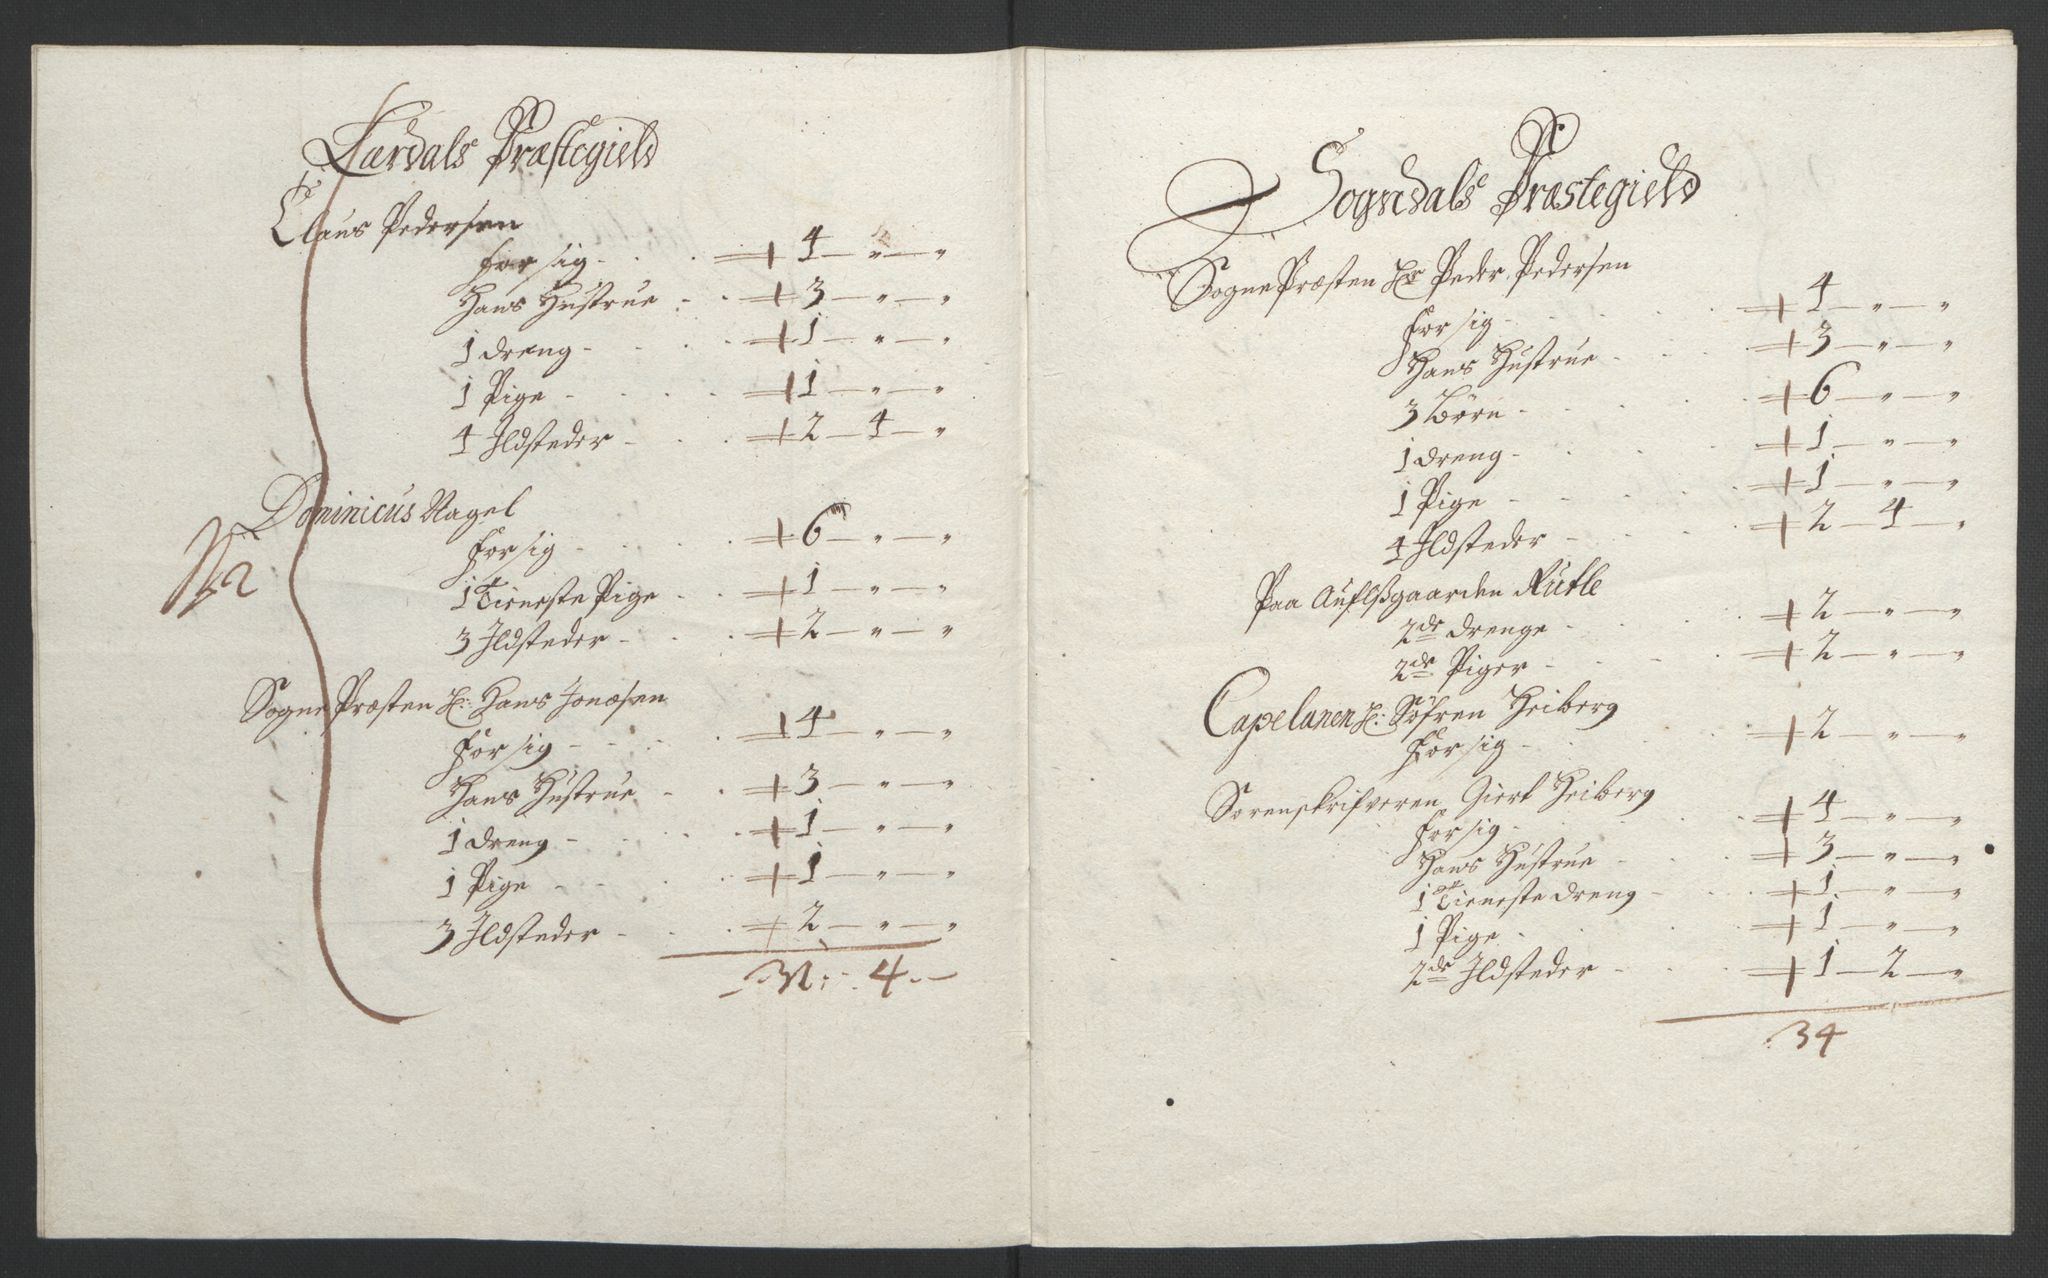 Lærdals Præstegield
Claus Pedersen
for sig - 4 — " — "
Hans Hustrue - 3 — " — "
1 dreng - 1 — " — "
1 Pige - 1 — " — "
4 Ildsteder - 2 — 4 — "
Dominicus Nagel
for sig - 6 — " — "
1 Tieneste Pige - 1 — " — "
3 Ildsteder - 2 — " — "
Sogne Præsten Hr: Hans Jonæsen
for sig - 4 — " — "
Hans Hustrue - 3 — " — "
1 dreng - 1 — " — "
1 Pige - 1 — " — "
3 Ildsteder - 2 — " — "
31 : 4 —
Sogndals Præstegield
Sogne Præsten Hr Peder Pedersen
for sig - 4 — " — "
Hans Hustrue - 3 — " — "
3 Børn - 6 — " — "
1 dreng - 1 — " — "
1 Pige - 1 — " — "
4 Ildsteder - 2 — 4 — "
Paa Auflsgaarden Rutle
2de drenge - 2 — " — "
2de Piger - 2 — " — "
Capelanen Hr: Söfren Heiberg
for sig - 2 — " — "
Sorenskrifveren Giert Heiberg
for sig - 4 — " — "
Hans Hustrue - 3 — " — "
1 Tieneste dreng - 1 — " — "
1 Pige - 1 — " — "
2de Ildsteder - 1 — 2 — "
34